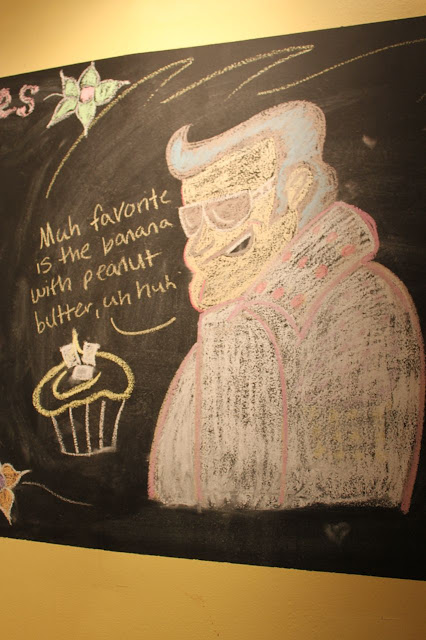 es
Muh favorite
is the banana
with peanut
butter, uh huh.